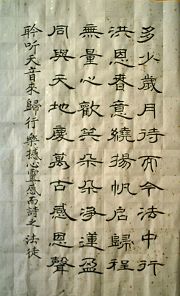 多少歲月待而今法中行
洪恩春意繞揚帆启歸程
無量心歡笑朵朵净蓮盈
同與天地慶萬古感恩聲
聆听天音來歸行 樂撼心靈感而詩之 法徒